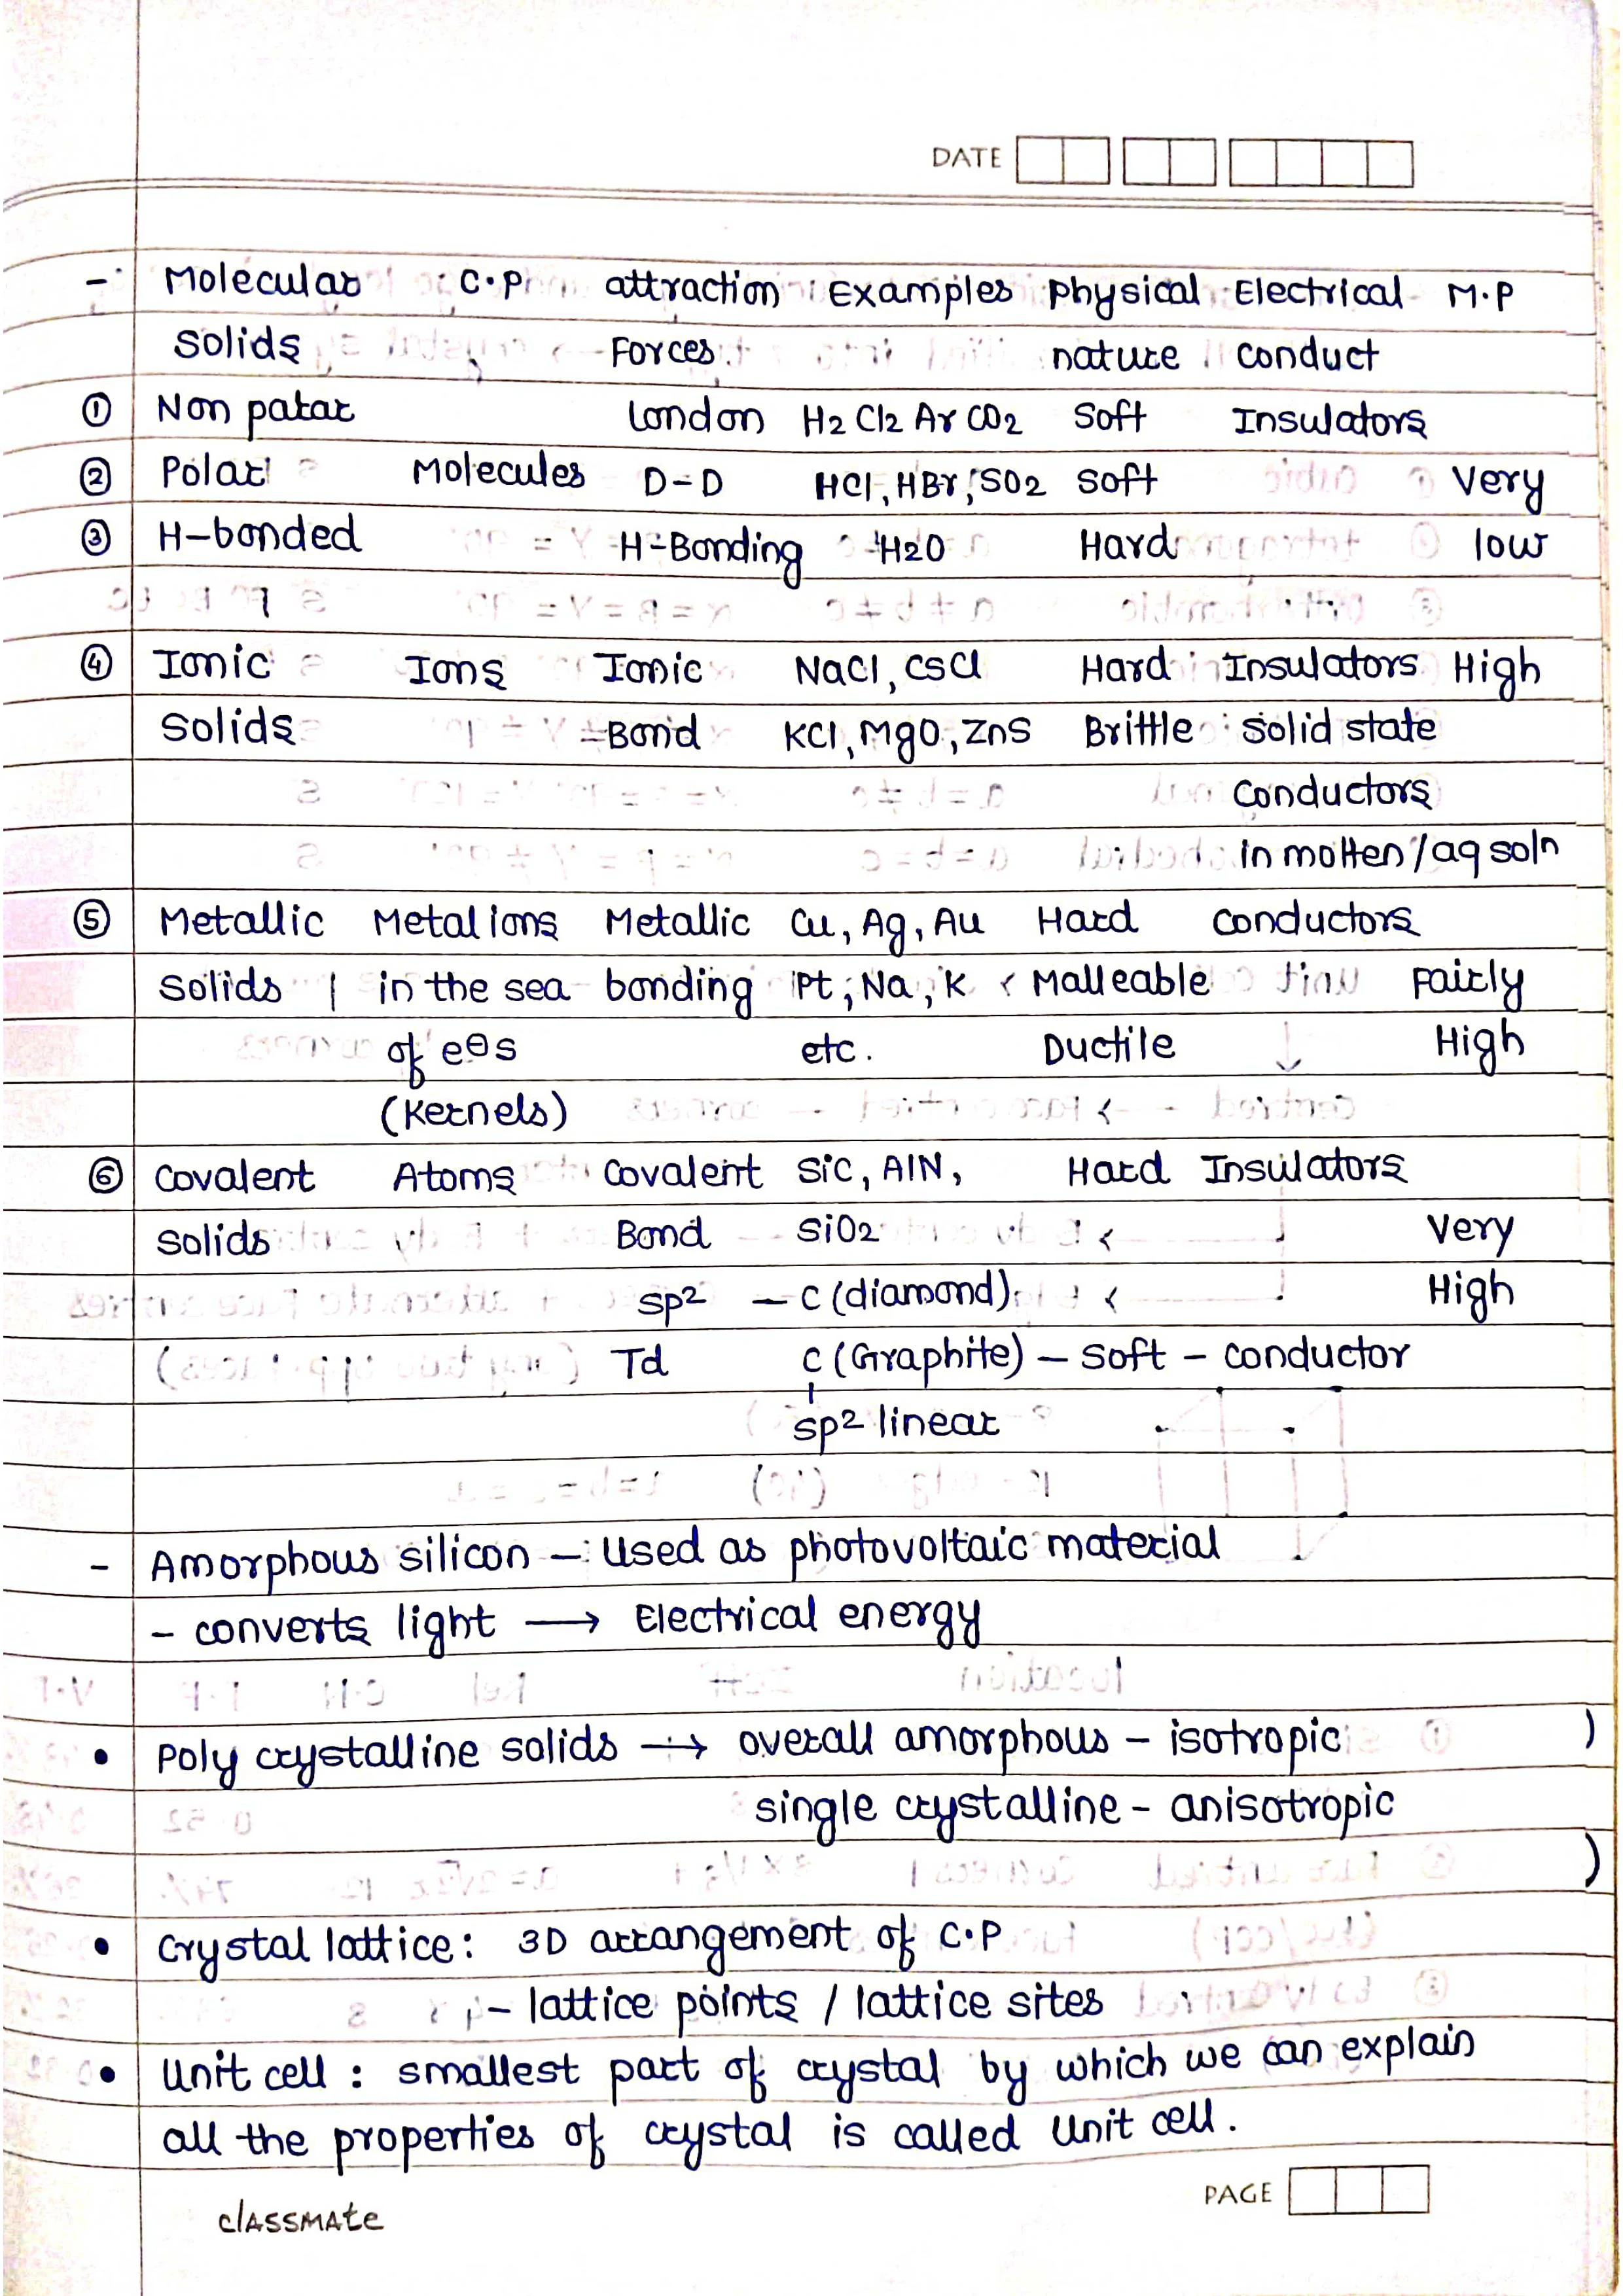 DATE
- Molecular C.P attraction Examples Physical Electrical M.P
Solids Forces nature conduct
① Non palar London H2 Cl2 Ar CO2 Soft Insulators
② Polar Molecules D-D HCl, HBr, SO2 Soft Very
③ H-bonded H-Bonding H2O Hard low
④ Ionic Ions Ionic NaCl, CsCl Hard Insulators High
Solids Bond KCl, MgO, ZnS Brittle Solid state
Conductors
in molten/aq soln
⑤ Metallic Metal ions Metallic Cu, Ag, Au Hard conductors
Solids in the sea bonding Pt, Na, K Malleable Fairly
of e⊖s etc. Ductile High
(Kernels)
⑥ Covalent Atoms Covalent SiC, AlN, Hard Insulators
Solids Bond SiO2 Very
sp2 - C (diamond) High
Td C (Graphite) - Soft - conductor
sp2 linear
- Amorphous silicon - Used as photovoltaic material
- converts light ⟶ Electrical energy
• Poly crystalline solids ⟶ overall amorphous - isotropic
single crystalline - anisotropic
• Crystal lattice: 3D arrangement of C.P
- lattice points / lattice sites
• Unit cell : smallest part of crystal by which we can explain
all the properties of crystal is called Unit cell.
classmate
PAGE